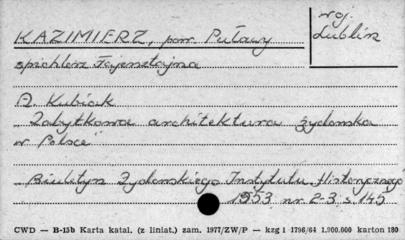 KAZIMIERZ, pow. Puławy
woj.
Lublin
spichlerz Fajersztajna
A. Kubiak
"Zabytkowa architektura żydowska
w Polsce"
Biuletyn Żydowskiego Instytutu Historycznego
1953 nr 2-3 s. 145
CWD — B-15b Karta katal. (z liniat.) zam. 1977/ZW/P — kzg 1 1796/64 1.000.000 karton 180